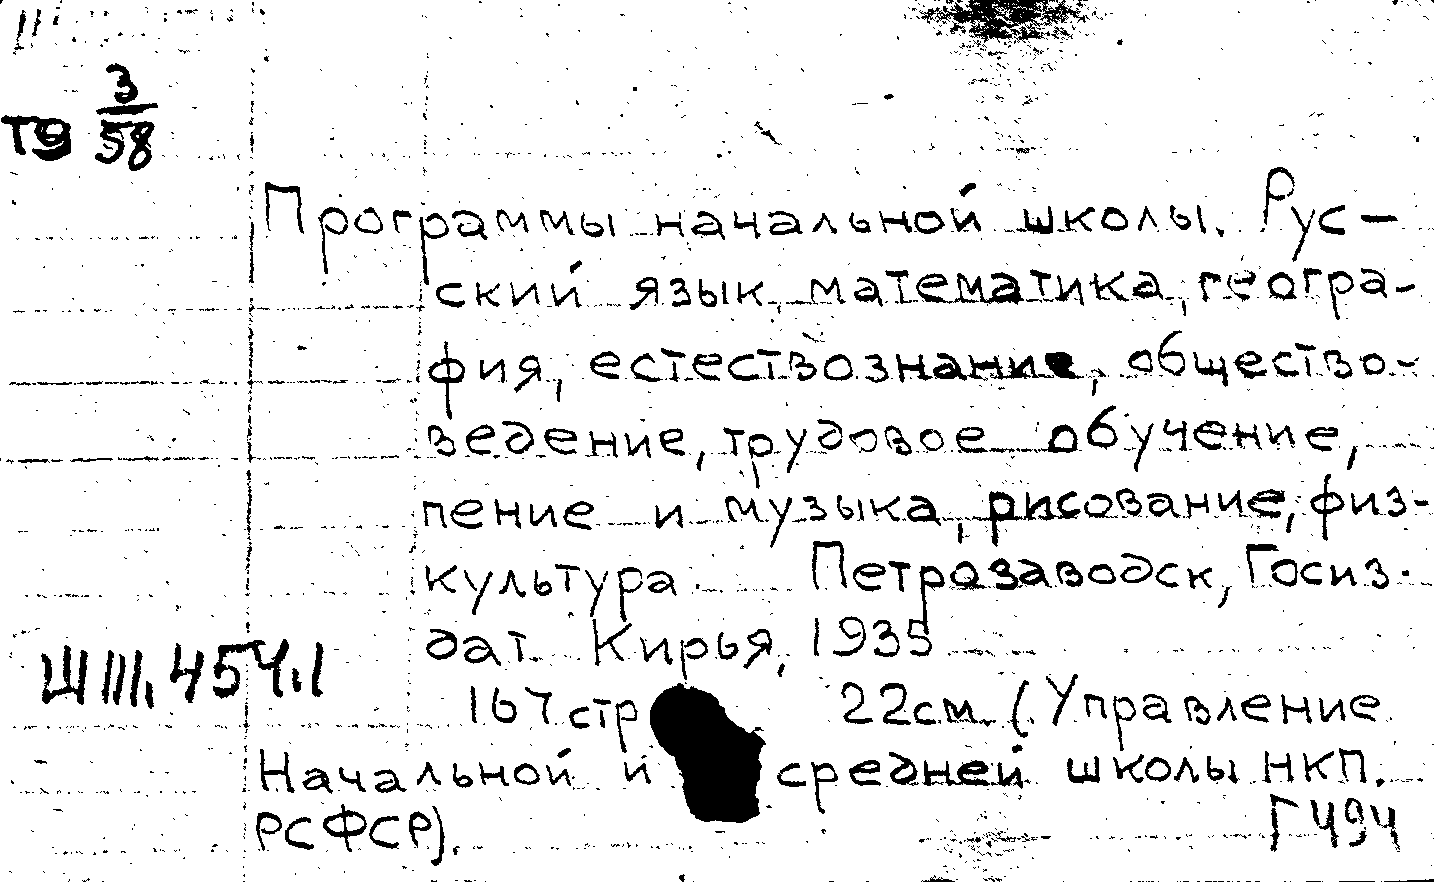 3
Т9 58
Программы начальной школы. Рус-
ский язык, математика, геогра-
фия, естествознание, общество-
ведение, трудовое обучение,
пение и музыка, рисование, физ-
культура. Петрозаводск, Госиз-
дат Кирья, 1935
Ш III. 454.1
167 стр 22см. (Управление
Начальной и средней школы НКП.
РСФСР).
Г494